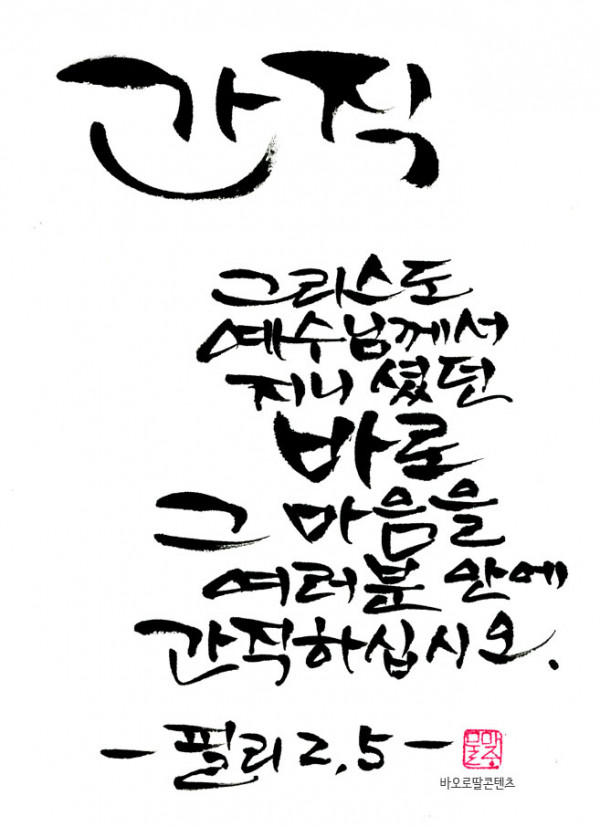 간직
그리스도
예수님께서
지니셨던
바로
그 마음을
여러분 안에
간직하십시오.
- 필리 2,5 -
바오로딸콘텐츠